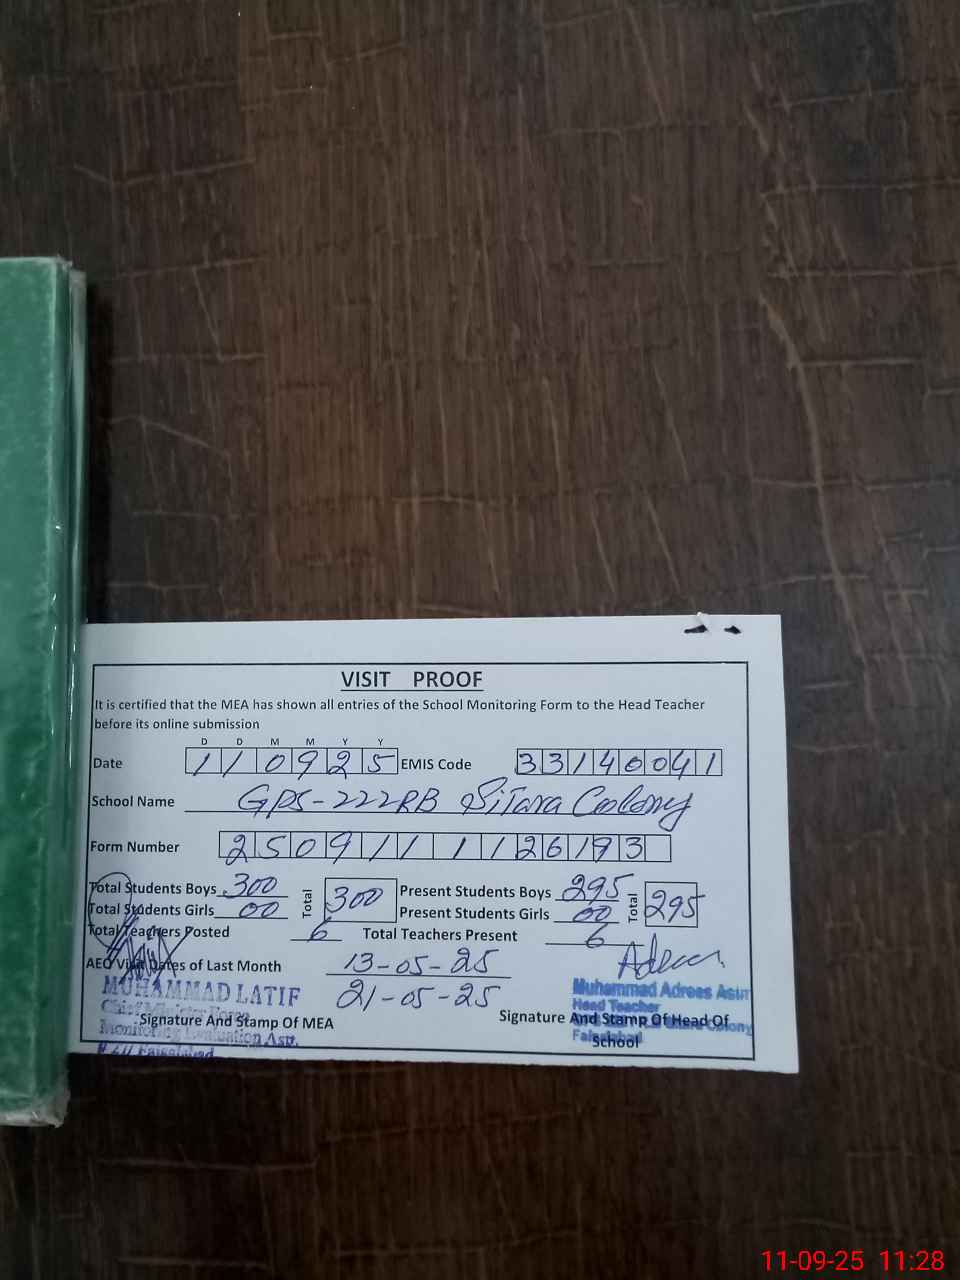 VISIT PROOF
It is certified that the MEA has shown all entries of the School Monitoring Form to the Head Teacher
before its online submission
D D M M Y Y
Date 110925 EMIS Code 33140041
School Name GPS-222RB Sitara Colony
Form Number 250911
Total Students Boys 300 Total 300 Present Students Boys 295 Total 295
Total Students Girls 00 Present Students Girls 00
Total Teachers Posted 6 Total Teachers Present 6
AEO Visit Dates of Last Month 13-05-25
21-05-25
MUHAMMAD LATIF
Chief Minister
Monitoring Evaluation Astt.
Faisalabad
Signature And Stamp Of MEA
Muhammad Adrees Asim
Head Teacher
Colony
Faisalabad
Signature And Stamp Of Head Of
School
11-09-25 11:28